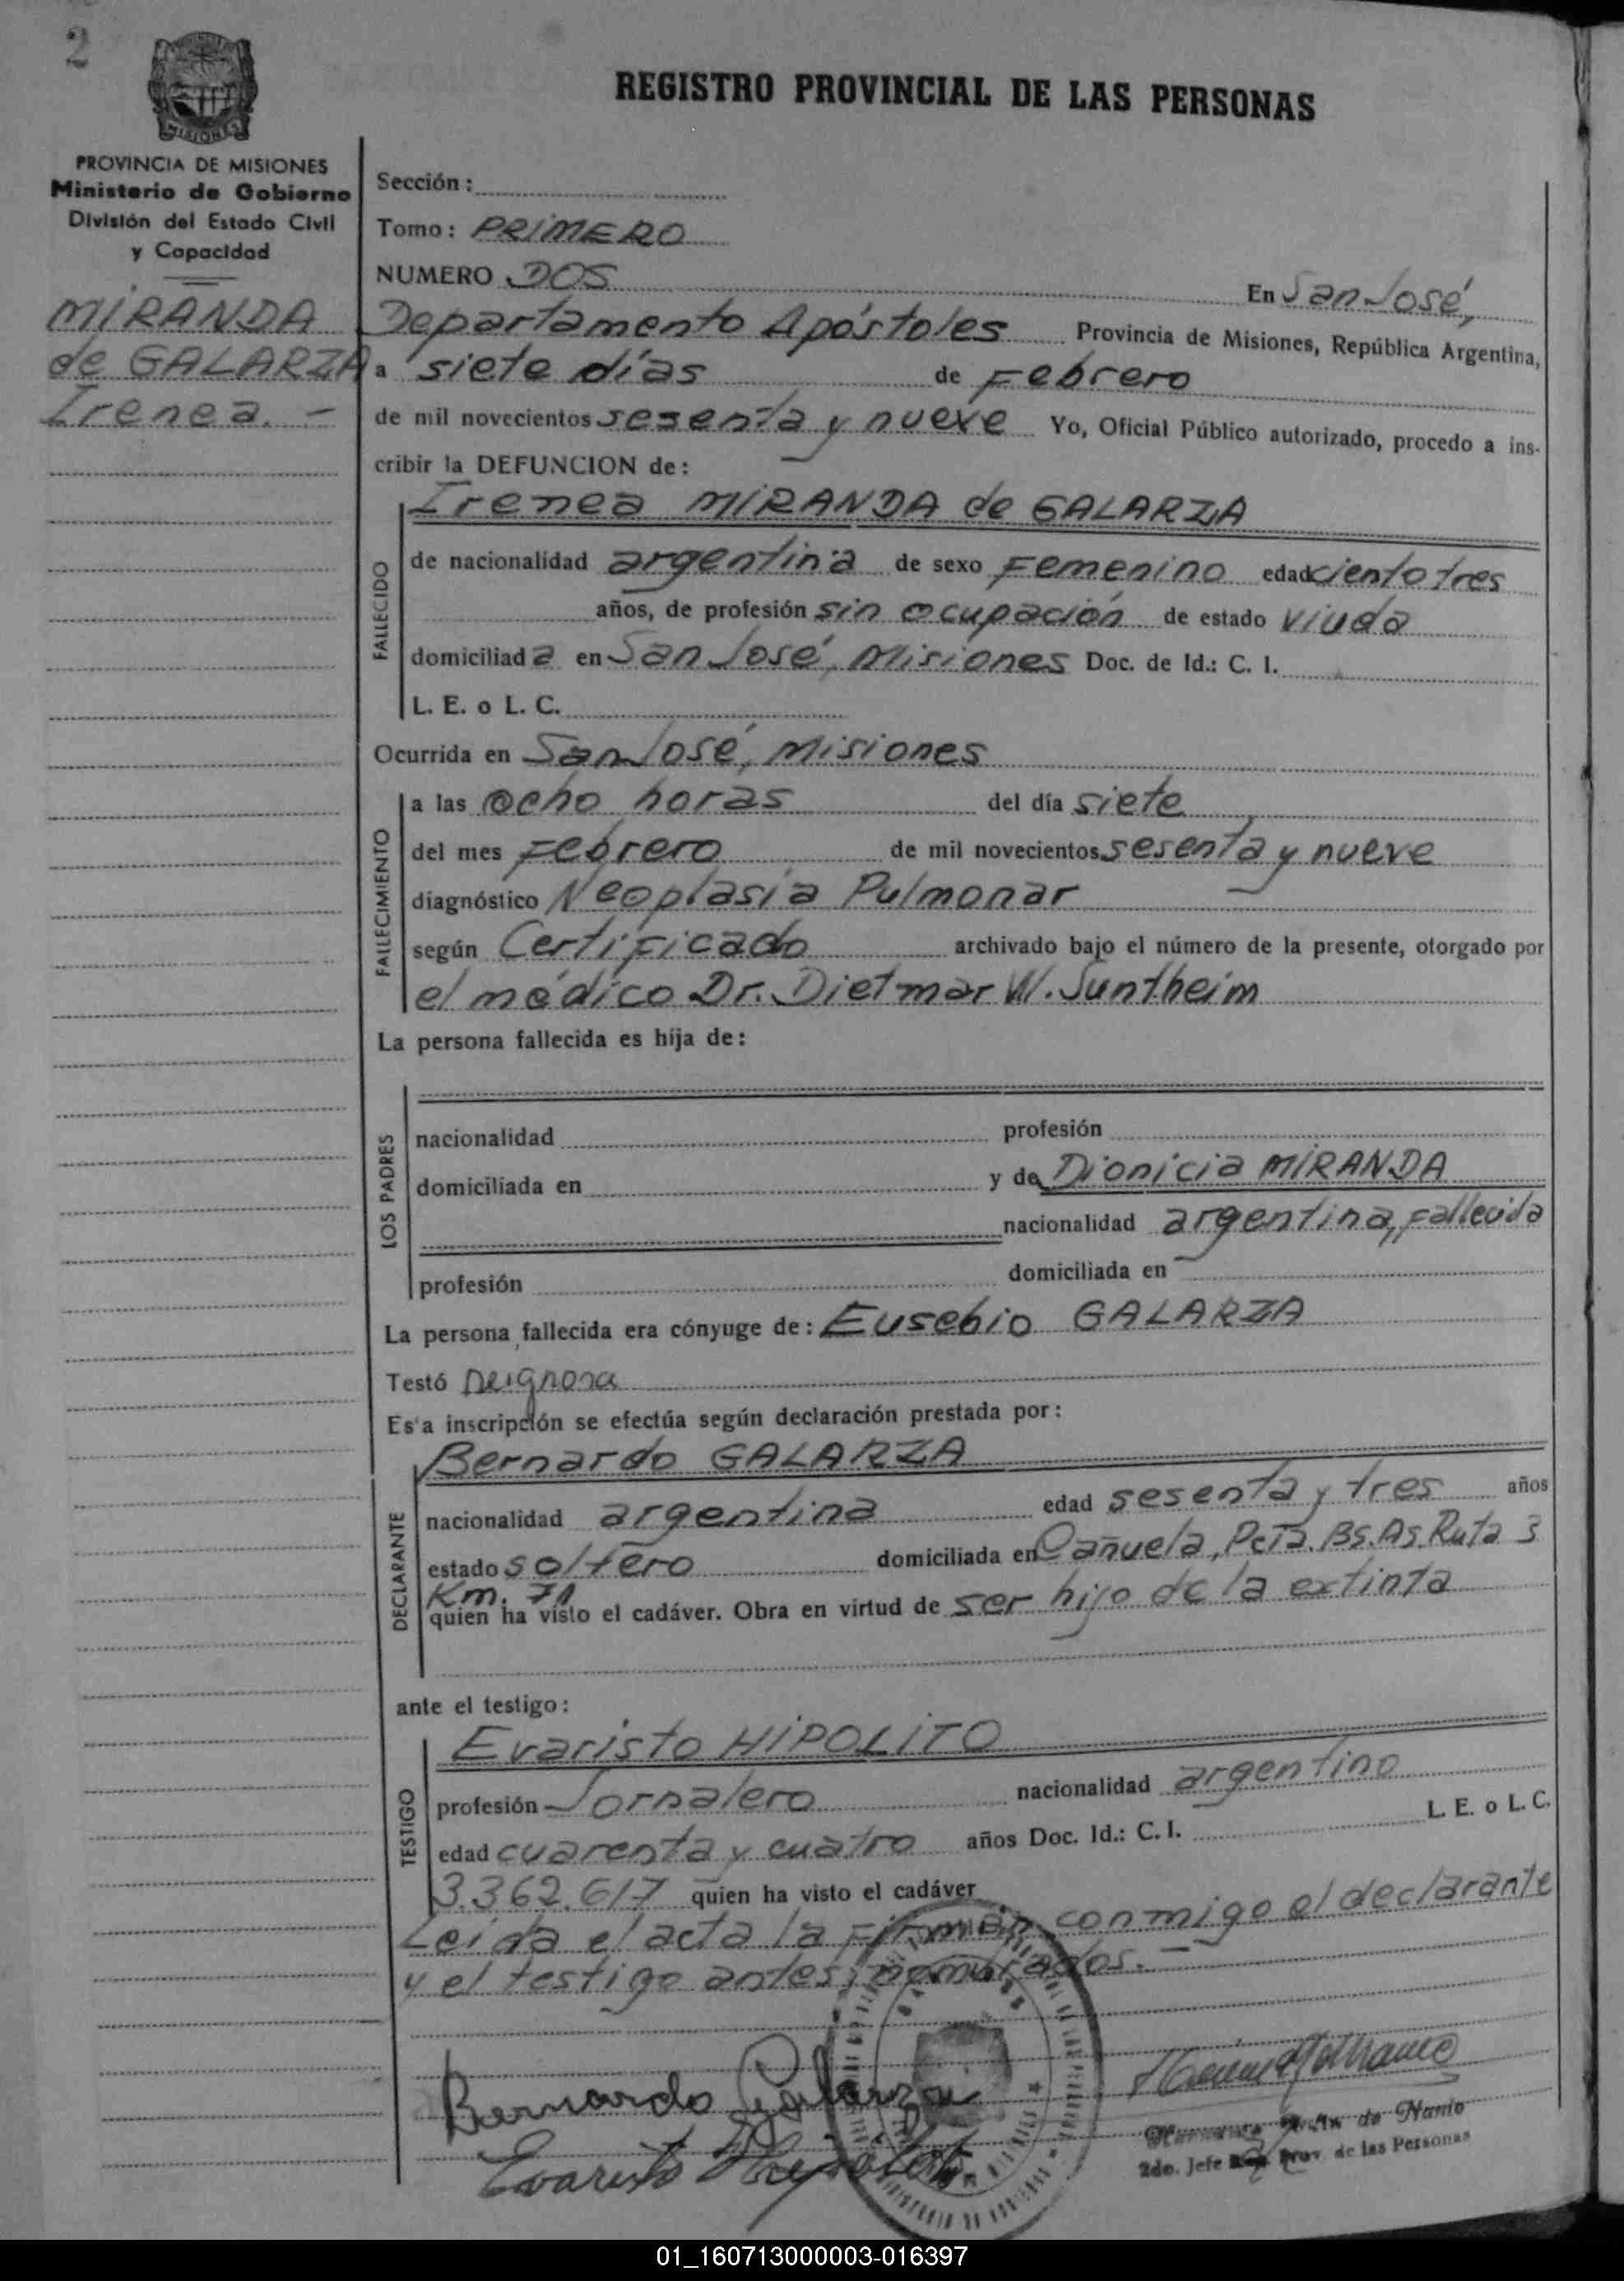 2
REGISTRO PROVINCIAL DE LAS PERSONAS
MISIONES
PROVINCIA DE MISIONES
Ministerio de Gobierno
División del Estado Civil
y Capacidad
MIRANDA
de GALARZA
Irenea. -
Sección:
Tomo: PRIMERO
NUMERO DOS En San José,
Departamento Apóstoles Provincia de Misiones, República Argentina,
a siete días de Febrero
de mil novecientos sesenta y nueve Yo, Oficial Público autorizado, procedo a ins-
cribir la DEFUNCION de:
Irenea MIRANDA de GALARZA
FALLECIDO
de nacionalidad argentina de sexo Femenino edad ciento tres
años, de profesión sin ocupación de estado viuda
domiciliada en San José, Misiones Doc. de Id.: C. I.
L. E. o L. C.
Ocurrida en San José, Misiones
FALLECIMIENTO
a las ocho horas del día siete
del mes Febrero de mil novecientos sesenta y nueve
diagnóstico Neoplasia Pulmonar
según Certificado archivado bajo el número de la presente, otorgado por
el médico Dr. Dietmar W. Suntheim
La persona fallecida es hija de:
LOS PADRES
nacionalidad profesión
domiciliada en y de Dionicia MIRANDA
nacionalidad argentina, Fallecida
profesión domiciliada en
La persona fallecida era cónyuge de: Eusebio GALARZA
Testó
Es'a inscripción se efectúa según declaración prestada por:
Bernardo GALARZA
DECLARANTE
nacionalidad argentina edad sesenta y tres años
estado soltero domiciliada en Cañuela, Pcia. Bs. As. Ruta 3
Km. 71
quien ha visto el cadáver. Obra en virtud de ser hijo de la extinta
ante el testigo:
Evaristo HIPOLITO
TESTIGO
profesión Jornalero nacionalidad argentino
edad cuarenta y cuatro años Doc. Id.: C. I. L. E. o L. C.
3.362.617 quien ha visto el cadáver
Leída el acta la Firman conmigo el declarante
y el testigo antes nombrados. -
Bernardo Galarza
Evaristo Hipolito
de Nanio
2do. Jefe Prov. de las Personas
01_160713000003-016397